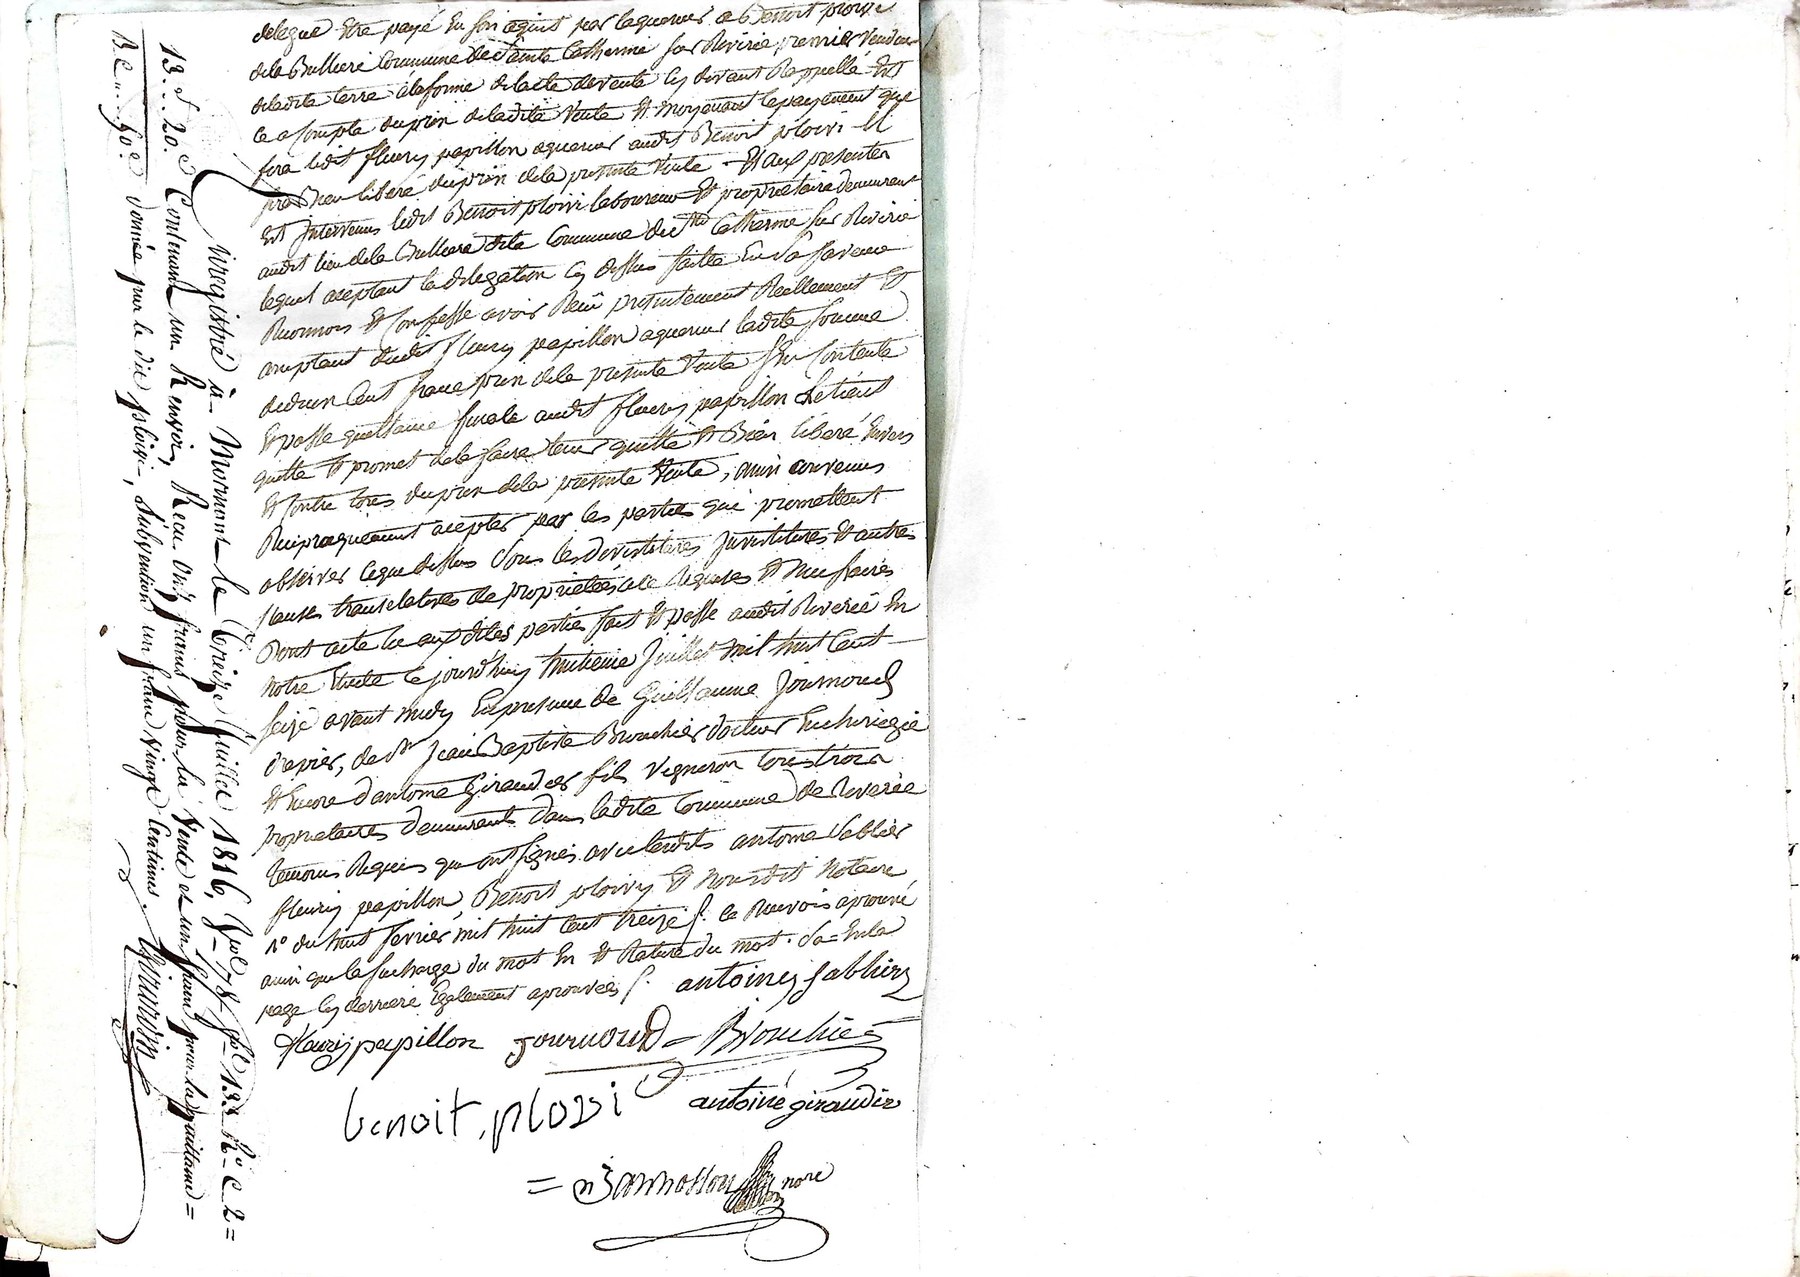 delegué Etre payé En son aquit par laquereur a Benoit ploivi
de la Bulliere Commune de Sainte Catherine sur Riverie premier Vendeur
de ladite terre a la forme de lacte de vente Cy devant Rappellé Est
ce a Compte du prix de ladite Vente Et moyenant le payement que
fera ledit fleury papillon aquereur audit Benoit ploivi Il
sera Bien liberé du prix de la presente Vente - Et aux presentes
Est Intervenu ledit Benoit ploivi laboureur Et proprietaire demeurant
audit lieu de la Bulliere dite Commune de Ste Catherine sur Riverie
lequel aceptant la delegation Cy dessus faitte En sa faveur
Reconnois Et Confesse avoir Recû presentement Reellement Et
comptant dudit fleury papillon aquereur ladite somme
de deux Cent franc prix de la presente Vente s'En Contente
Et passe quittance finale audit fleury papillon Le tient
quitte Et promet de le faire tenir quitte Et Bien liberé Envers
Et Contre tous du prix de la presente Vente, ainsi convenus
Reciproquement acepter par les parties qui promettent
observer ceque dessus sous les devestitures Investitures Et autres
clauses translatives de proprietées a ce Requises Et necessaires
Dont acte lu aux dites parties fait Et passé audit Riverie En
notre Etude Ce jourd'huy huitieme Juillet mil huit Cent
seize avant midy En presence de Guillaume Journoud
epicier, de Sr Jean Baptiste Brouchier docteur En chirurgie
Et Encore d'antoine Giraudier fils Vigneron tous trois
proprietaires demeurant dans ladite Commune de Riverie
temoins Requis qui ont signés avec lesdits antoine Sablier
fleury papillon, Benoit ploivy Et nous dit Notaire
1º du huit fevrier mil huit Cent treize /. le Renvois aprouvé
ainsi que la surcharge du mot En Et Rature du mot . Sa = En la
page Cy derriere Egalement aprouvés /. antoine Sablier
fleury papillon Journoud = Brouchier
benoit, plovi antoine giraudier
= nore
Enregistré à Mornant le treize Juillet 1816, Vol. 78 fol. 133 Rº C. 2 =
13. f. 20. c Contenant un Renvoi, Reçu Onze francs pour la Vente et un franc pour la quittance =
donnée par le dit ploivi, Subvention un franc vingt Centimes.